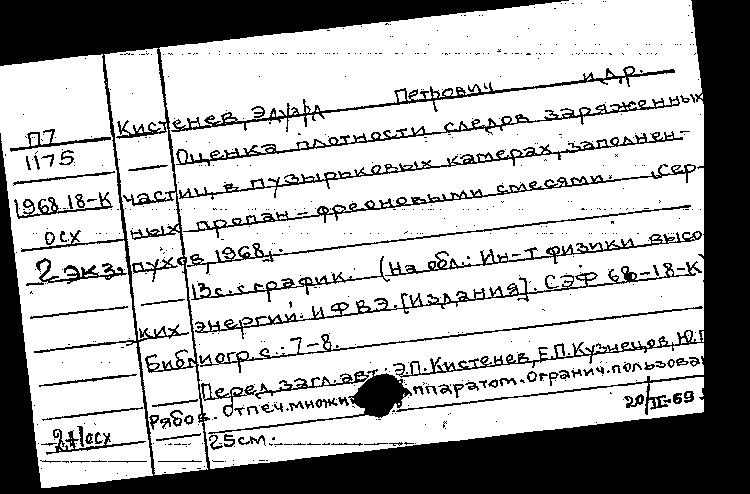 Кистенев, Эдуард Петрович и др.
П7
1175
Оценка плотности следов заряженных
1968.18-К
частиц в пузырьковых камерах, заполнен-
осх
ных пропан-фреоновыми смесями. Сер-
2 экз.
пухов, 1968.
13с. с график. (На обл.: Ин-т физики высо
ких энергий. ИФВЭ. [Издания]. СЭФ 68-18-К)
Библиогр. с.: 7-8.
Перед загл. авт.: Э.П. Кистенев, Е.П. Кузнецов, Ю.
Рябов. Отпеч. множит аппаратом. Огранич. пользова
20/II-69
25см.